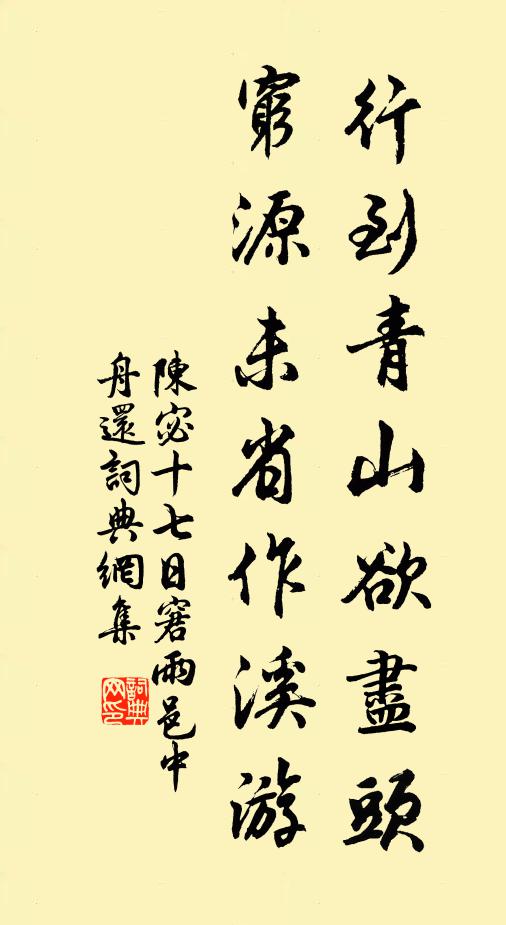 行到青山欲盡頭
窮源未省作溪游
陳宓十七日窘雨邑中
舟還詞典網集
詞典网印